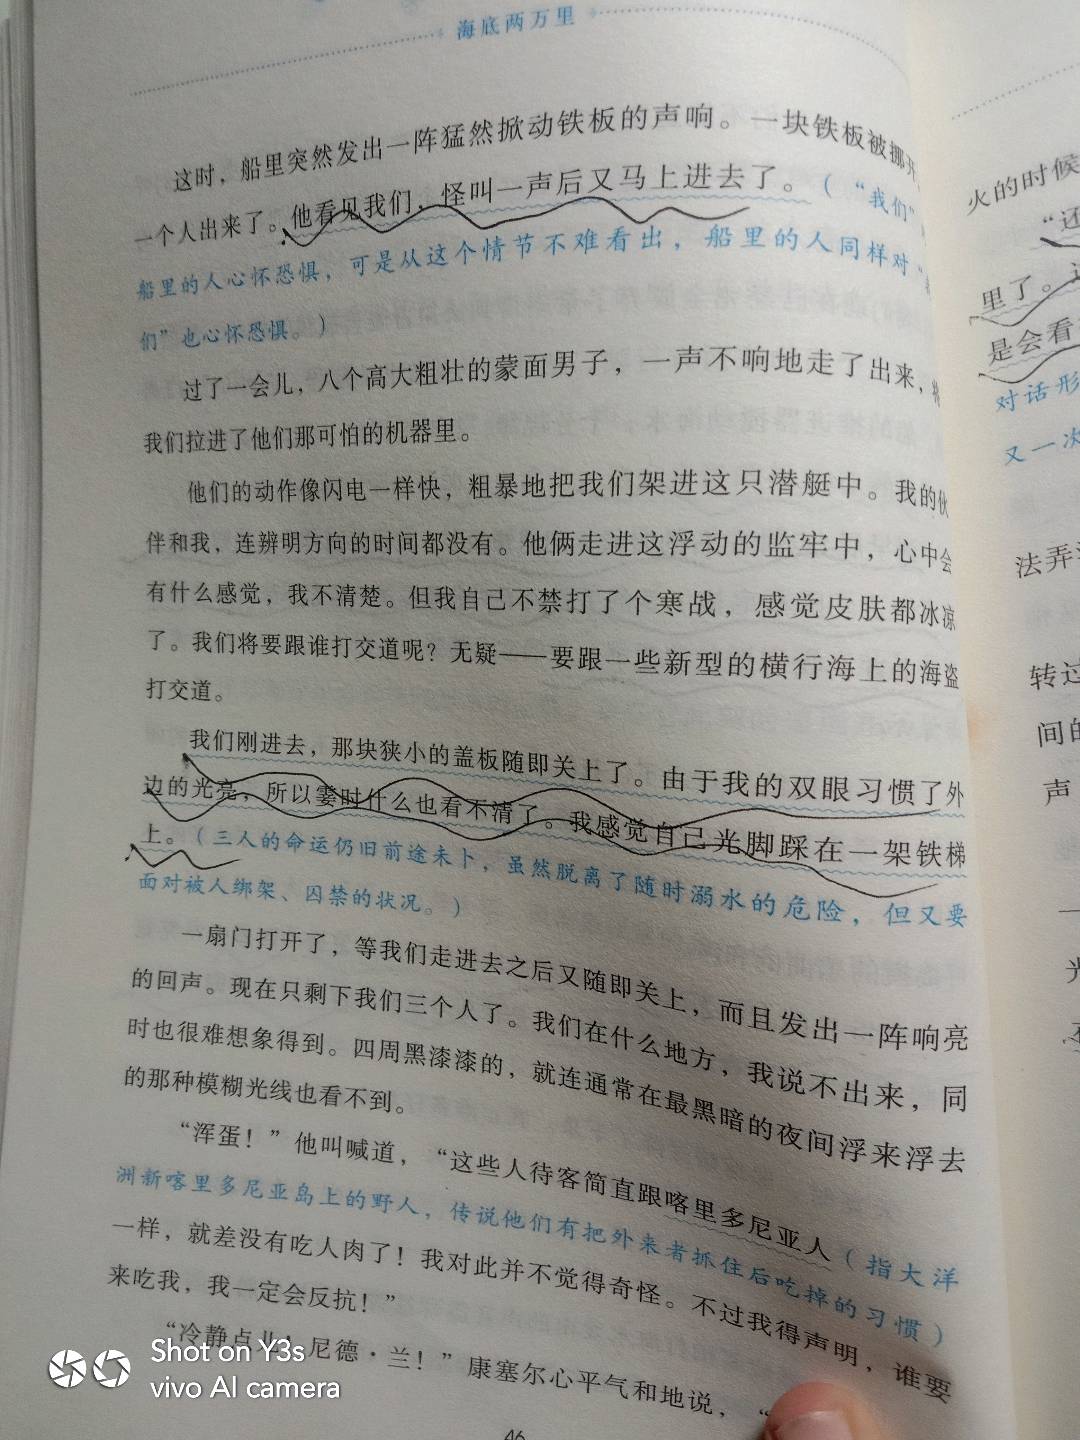 海底两万里
这时，船里突然发出一阵猛然掀动铁板的声响。一块铁板被挪开，
一个人出来了。他看见我们，怪叫一声后又马上进去了。（“我们”
船里的人心怀恐惧，可是从这个情节不难看出，船里的人同样对“
们”也心怀恐惧。）
过了一会儿，八个高大粗壮的蒙面男子，一声不响地走了出来，
我们拉进了他们那可怕的机器里。
他们的动作像闪电一样快，粗暴地把我们架进这只潜艇中。我的伙
伴和我，连辨明方向的时间都没有。他俩走进这浮动的监牢中，心中会
有什么感觉，我不清楚。但我自己不禁打了个寒战，感觉皮肤都冰凉
了。我们将要跟谁打交道呢？无疑——要跟一些新型的横行海上的海盗
打交道。
我们刚进去，那块狭小的盖板随即关上了。由于我的双眼习惯了外
边的光亮，所以霎时什么也看不清了。我感觉自己光脚踩在一架铁梯
上。（三人的命运仍旧前途未卜，虽然脱离了随时溺水的危险，但又要
面对被人绑架、囚禁的状况。）
一扇门打开了，等我们走进去之后又随即关上，而且发出一阵响亮
的回声。现在只剩下我们三个人了。我们在什么地方，我说不出来，同
时也很难想象得到。四周黑漆漆的，就连通常在最黑暗的夜间浮来浮去
的那种模糊光线也看不到。
“浑蛋！”他叫喊道，“这些人待客简直跟喀里多尼亚人（指大洋
洲新喀里多尼亚岛上的野人，传说他们有把外来者抓住后吃掉的习惯）
一样，就差没有吃人肉了！我对此并不觉得奇怪。不过我得声明，谁要
来吃我，我一定会反抗！”
“冷静点儿！尼德·兰！”康塞尔心平气和地说，“
46
火的时候
“还
里了。
是会看
对话形
又一次
法弄
转过
间的
声
Shot on Y3s
vivo AI camera